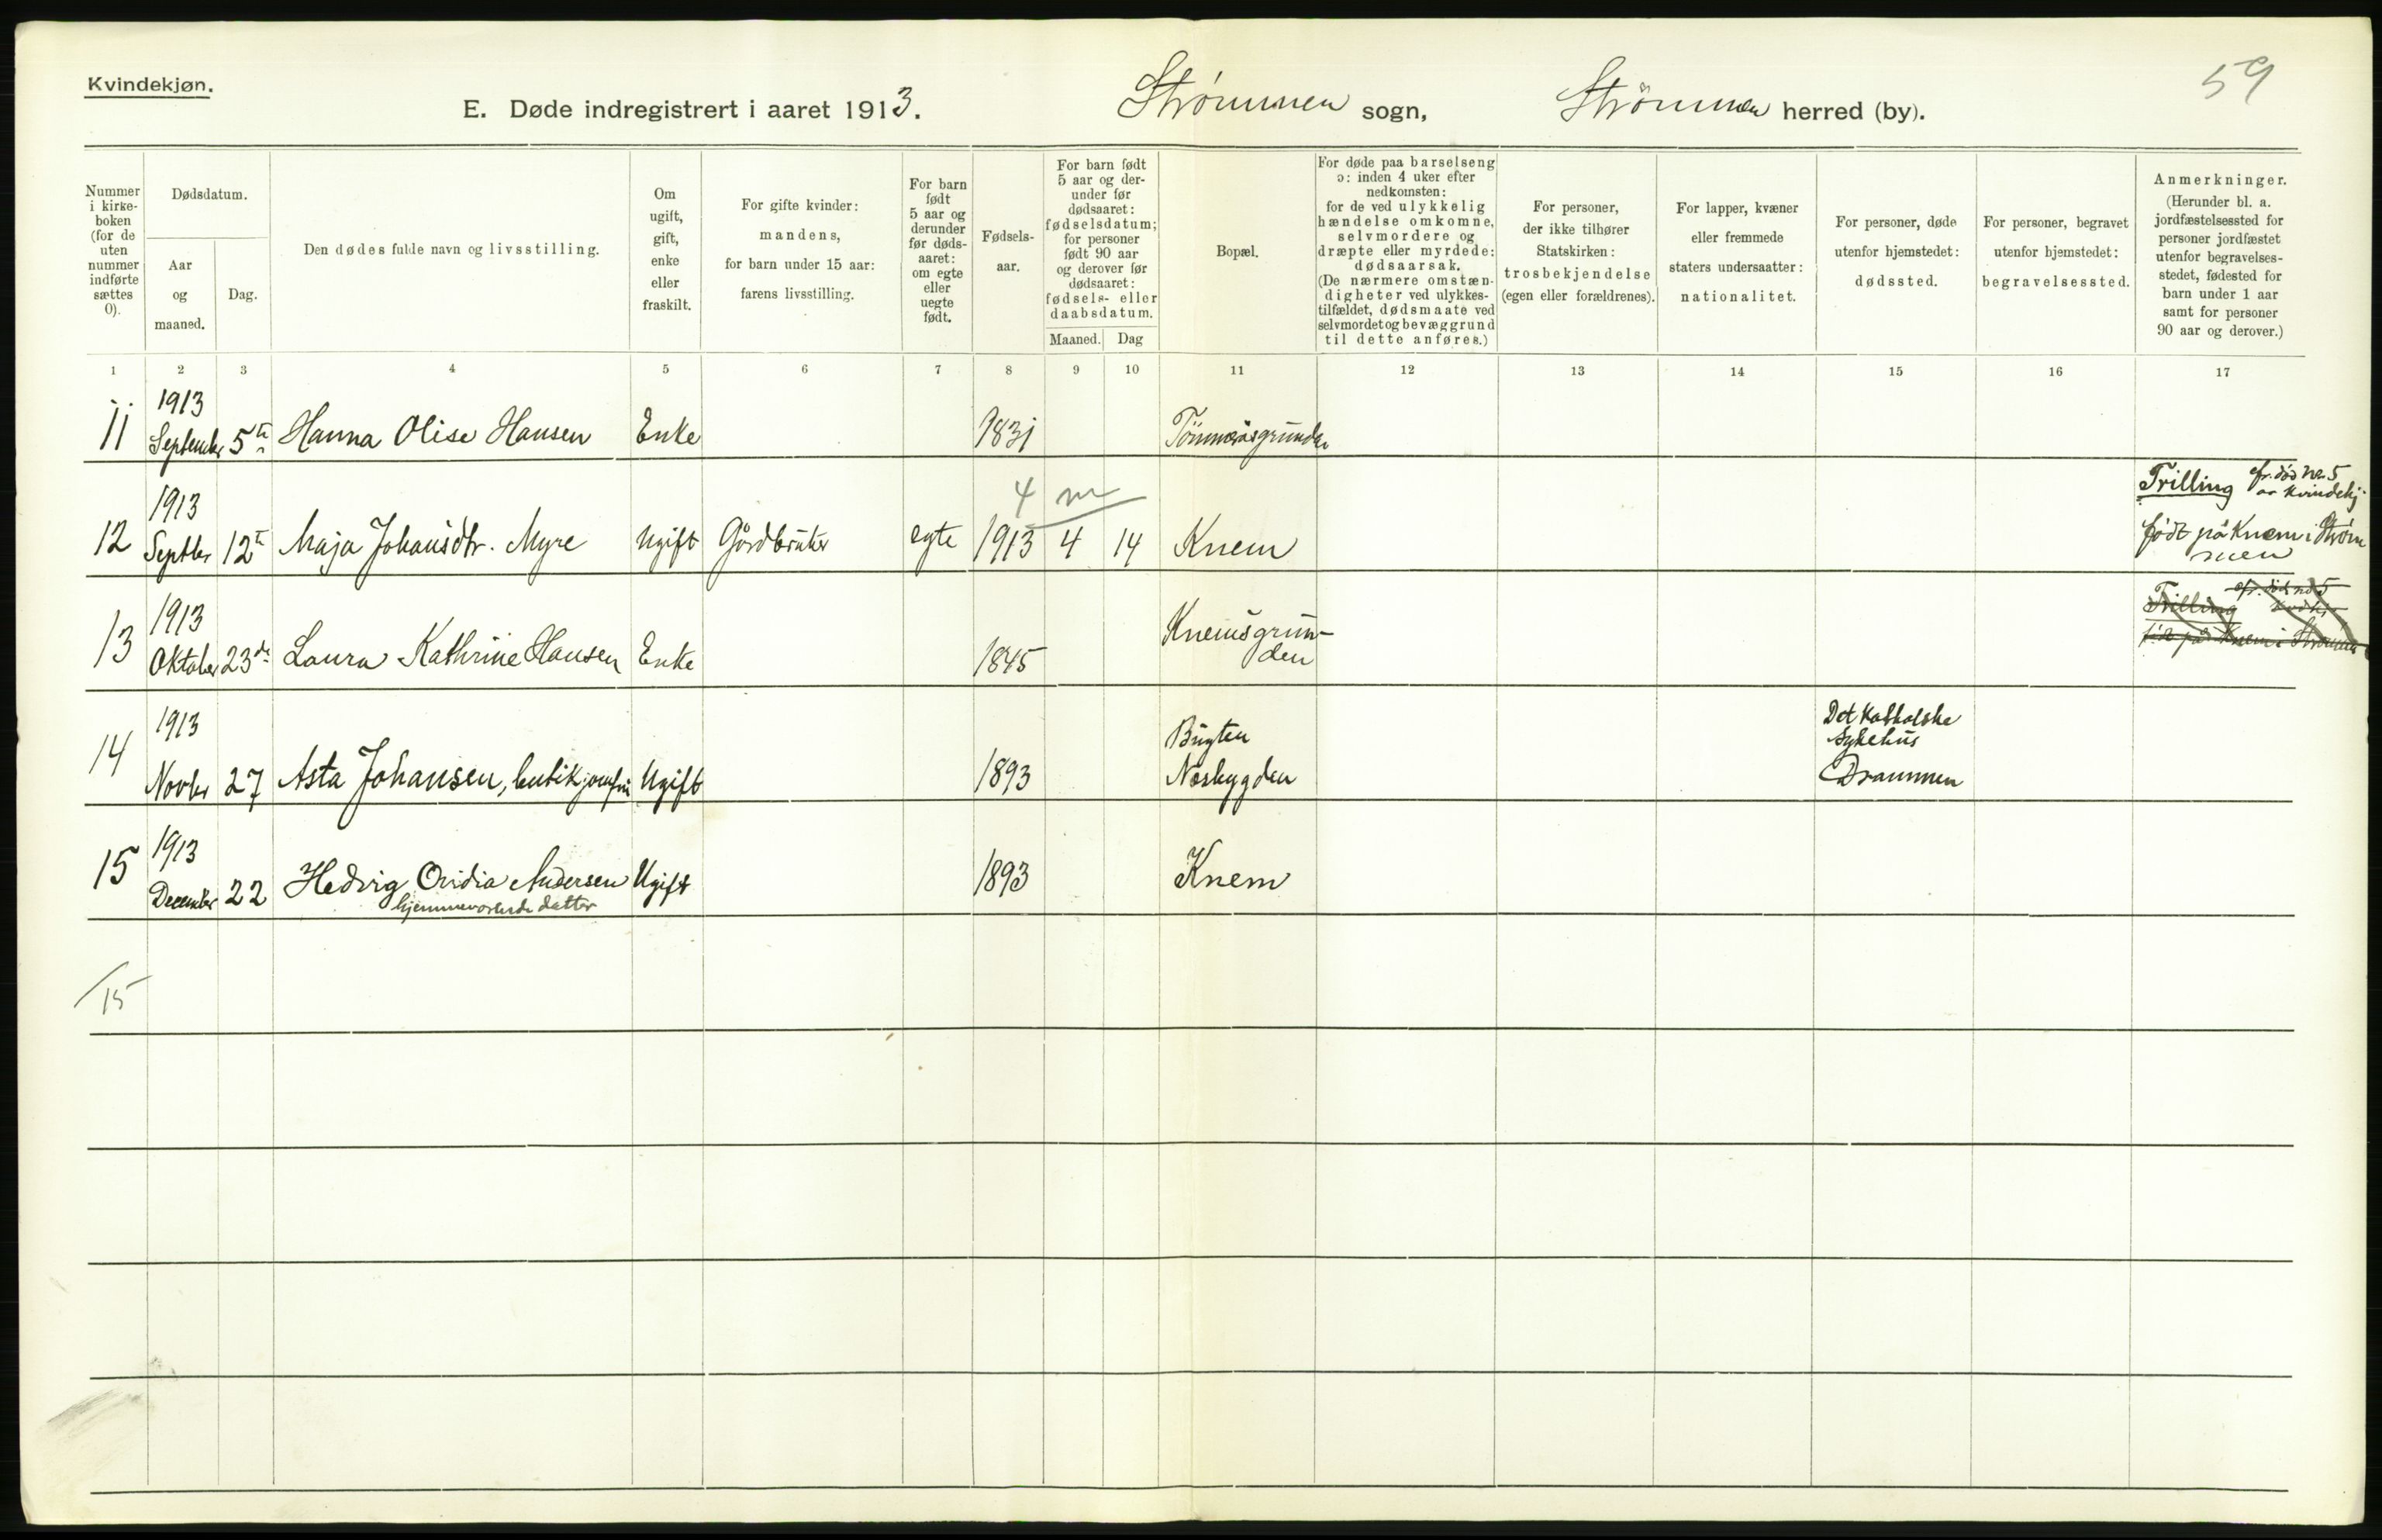 Kvindekjøn.
59
E. Døde indregistrert i aaret 1913.
Strømmen sogn,
Strømmen herred (by).
Nummer
i kirke-
boken
(for de
uten
nummer
indførte
sættes
0).
Dødsdatum.
Aar
og
maaned.
Dag.
Den dødes fulde navn og livsstilling.
Om
ugift,
gift,
enke
eller
fraskilt.
For gifte kvinder:
mandens,
for barn under 15 aar:
farens livsstilling.
For barn
født
5 aar og
derunder
før døds-
aaret:
om egte
eller
uegte
født.
Fødsels-
aar.
For barn født
5 aar og der-
under før
dødsaaret:
fødselsdatum;
for personer
født 90 aar
og derover før
dødsaaret:
fødsels- eller
daabsdatum.
Maaned.
Dag
Bopæl.
For døde paa barselseng
ɔ: inden 4 uker efter
nedkomsten:
for de ved ulykkelig
hændelse omkomne,
selvmordere og
dræpte eller myrdede:
dødsaarsak.
(De nærmere omstæn-
digheter ved ulykkes-
tilfældet, dødsmaate ved
selvmordet og bevæggrund
til dette anføres.)
For personer,
der ikke tilhører
Statskirken:
trosbekjendelse
(egen eller forældrenes).
For lapper, kvæner
eller fremmede
staters undersaatter:
nationalitet.
For personer, døde
utenfor hjemstedet:
dødssted.
For personer, begravet
utenfor hjemstedet:
begravelsessted.
Anmerkninger.
(Herunder bl. a.
jordfæstelsessted for
personer jordfæstet
utenfor begravelses-
stedet, fødested for
barn under 1 aar
samt for personer
90 aar og derover.)
1 2 3 4 5 6 7 8 9 10 11 12 13 14 15 16 17
1913
11 September 5te Hanna Olise Hansen Enke 1831 Tömmeråsgrunden
4 m
Trilling cfr. død no 5
av kvindekj.
1913
12 Septbr 12te Maja Johansdtr. Myre Ugift Gårdbruker egte 1913 4 14 Knem
født på Knem i Strøm
men
1913
13 Oktober 23de Laura Kathrine Hansen Enke 1845
Knemsgrun-
den
Trilling cfr. død no 5
født på Knem i Strömmen
1913
14 Novbr 27 Asta Johansen, butikjomfru Ugift 1893
Bugten
Nosbygden
Det katholske
sykehus
Drammen
1913
15 December 22 Hedvig Ovidia Andersen Ugift 1893 Knem
hjemmeværende datter
15